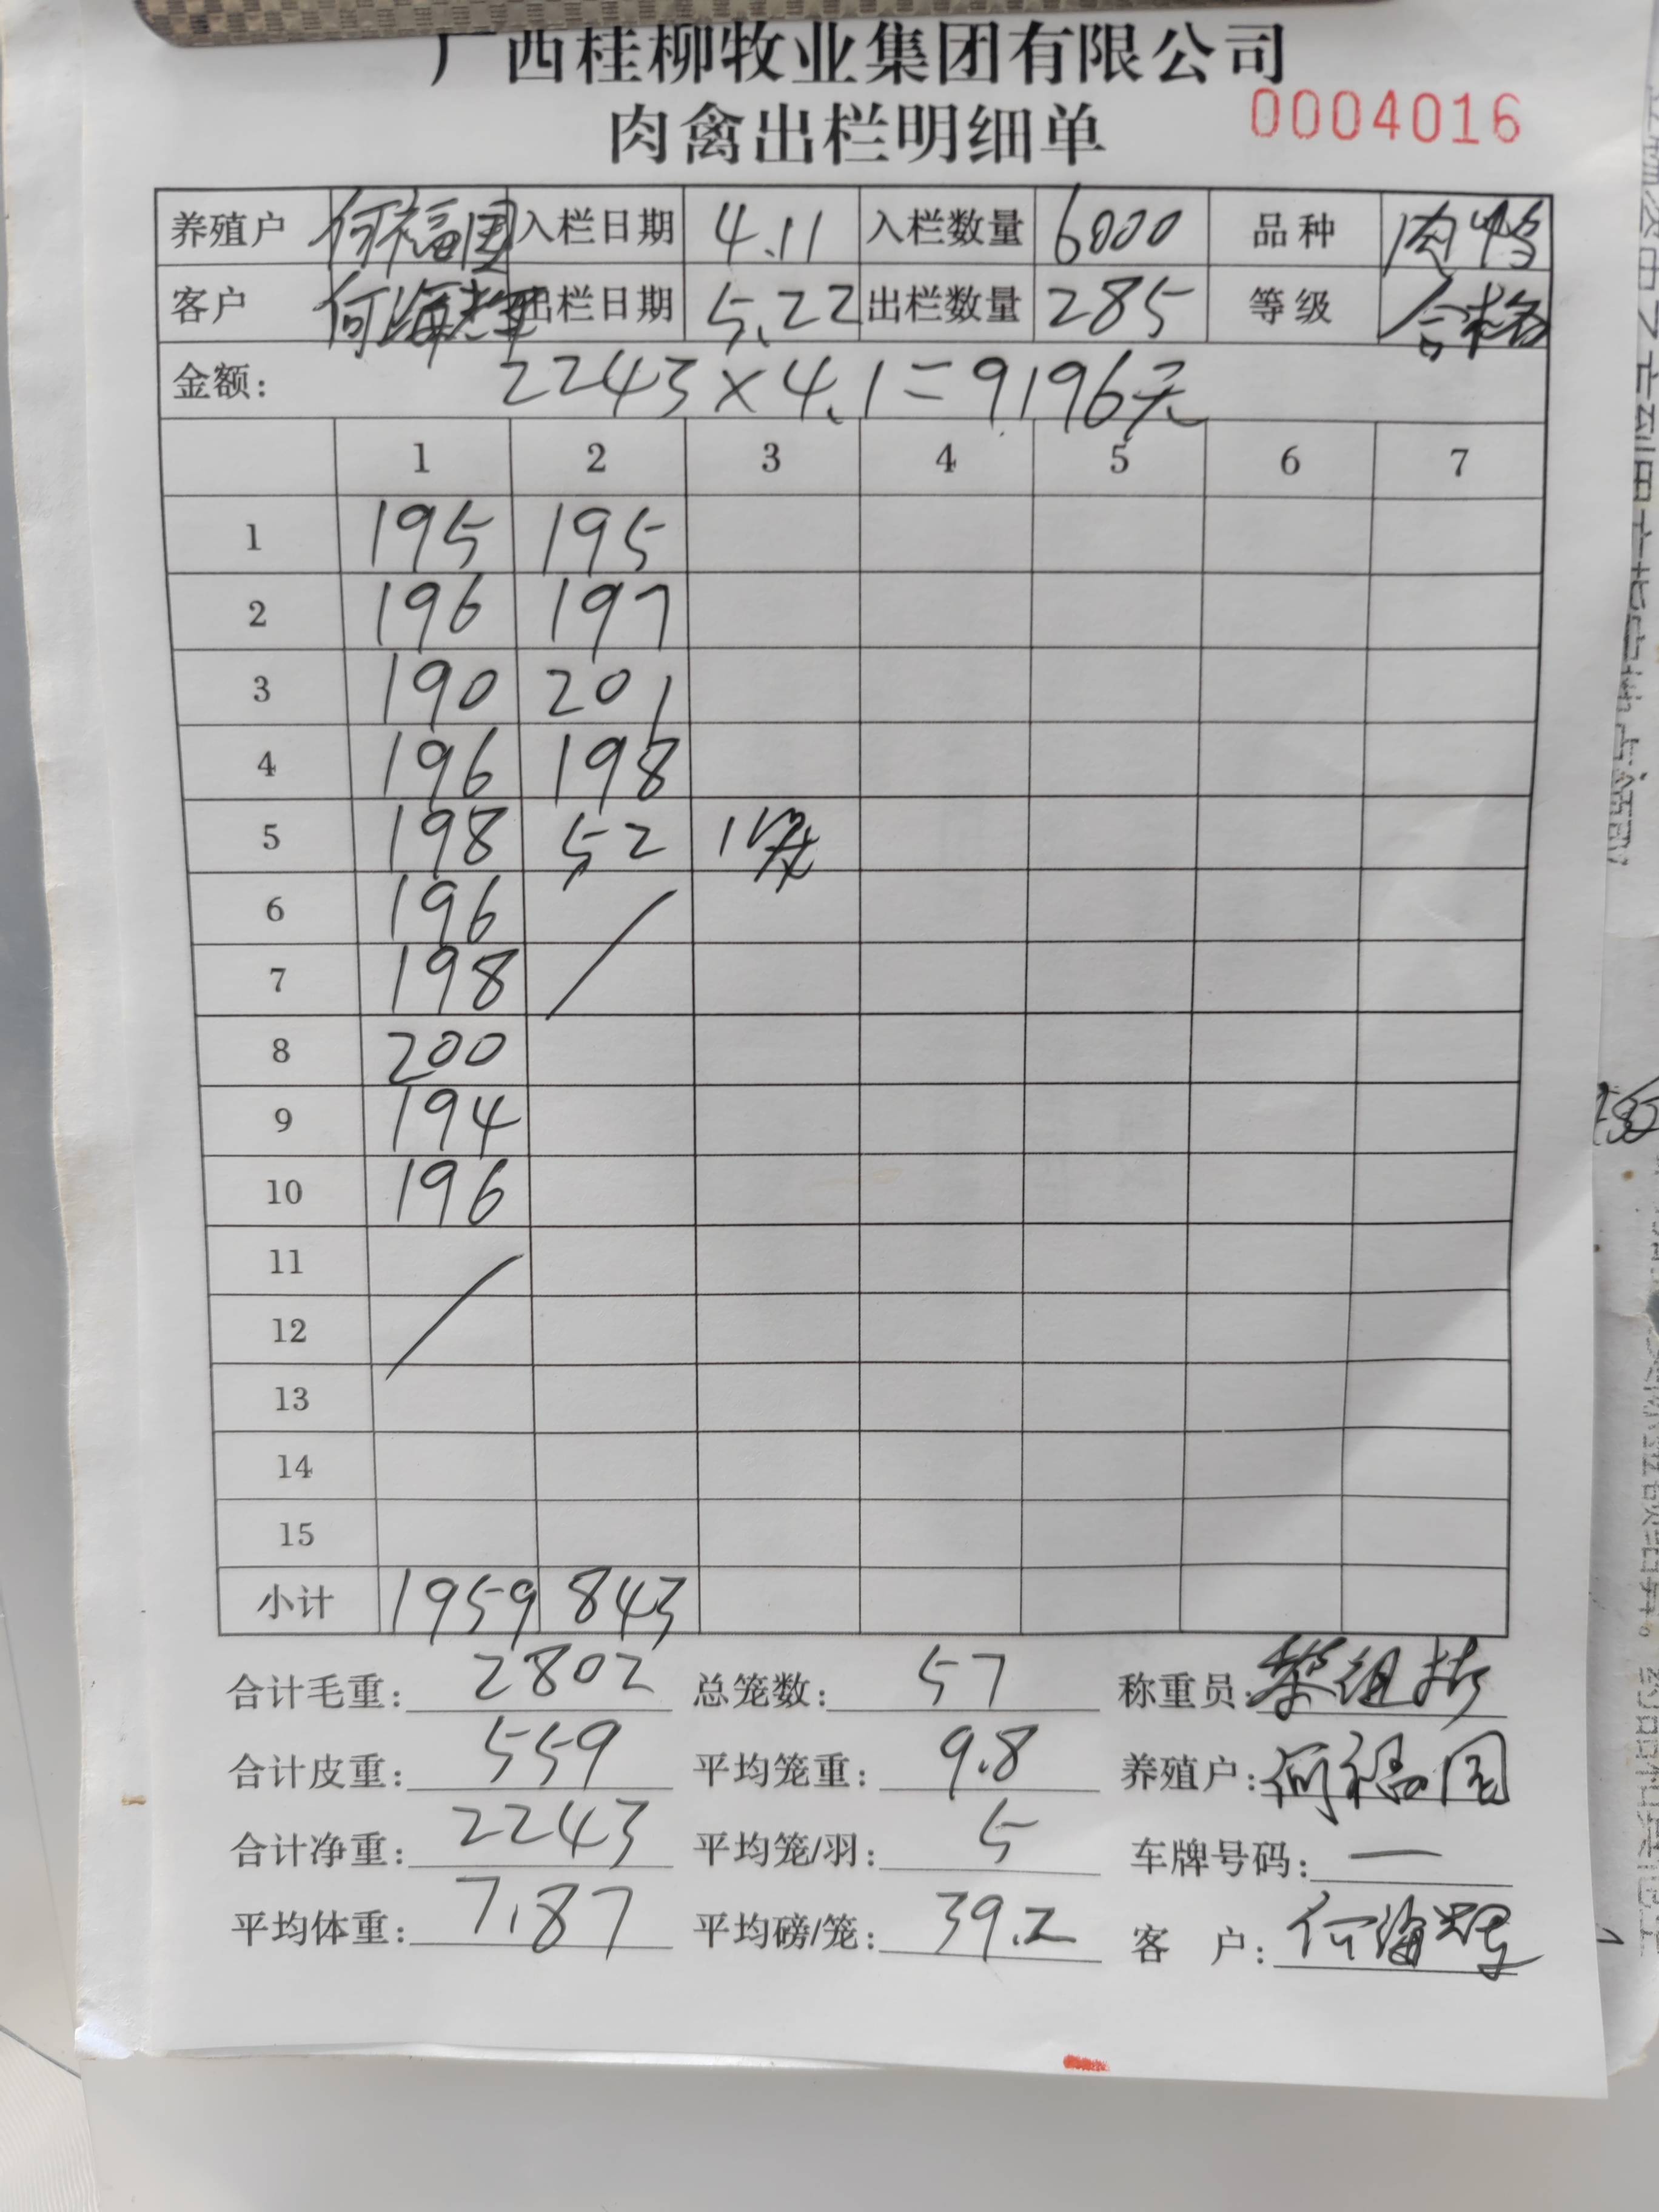 广西桂柳牧业集团有限公司
肉禽出栏明细单 0004016
养殖户 何福国 入栏日期 4.11 入栏数量 6000 品种 肉鸭
客户 何海辉 出栏日期 5.22 出栏数量 285 等级 合格
金额: 2243×4.1=9196元
1 2 3 4 5 6 7
1 195 195
2 196 197
3 190 201
4 196 198
5 198 52 1笼
6 196
7 198
8 200
9 194
10 196
11
12
13
14
15
小计 1959 843
合计毛重: 2802 总笼数: 57 称重员:
合计皮重: 559 平均笼重: 9.8 养殖户: 何福国
合计净重: 2243 平均笼/羽: 5 车牌号码: —
平均体重: 7.87 平均磅/笼: 39.2 客 户: 何海辉